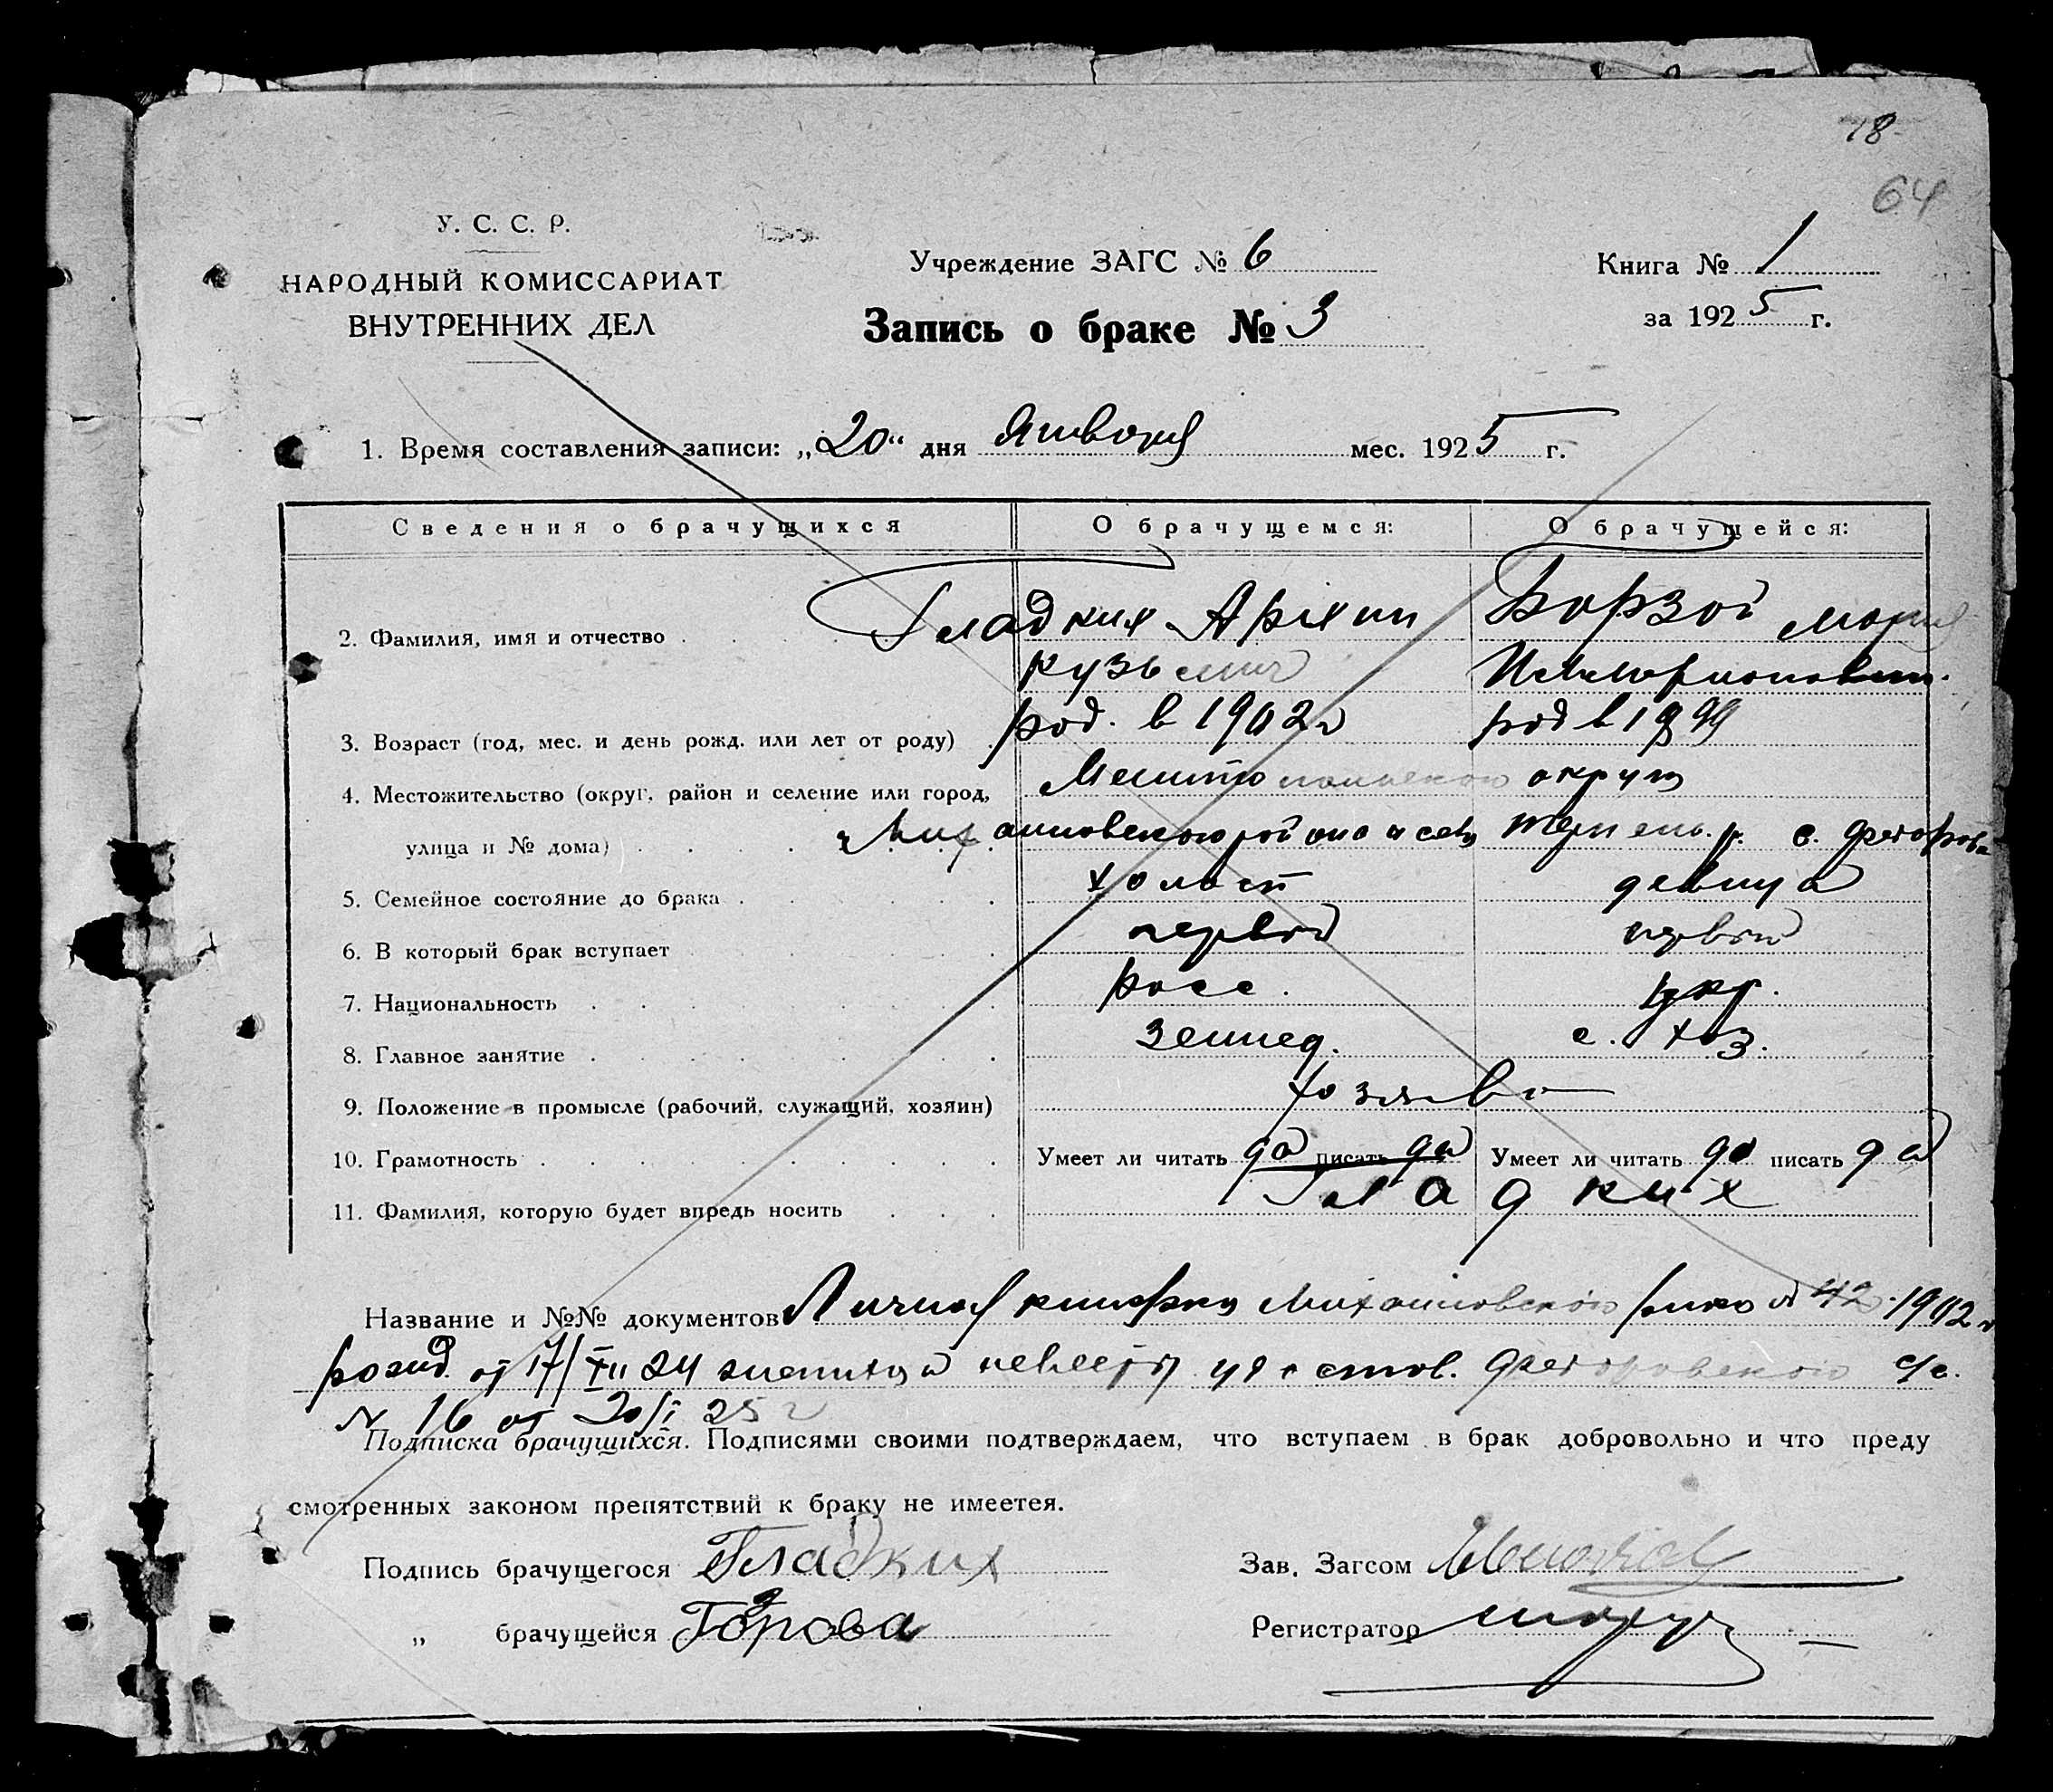 18
64
У. С. С. Р.
НАРОДНЫЙ КОМИССАРИАТ
ВНУТРЕННИХ ДЕЛ
Учреждение ЗАГС № 6
Запись о браке № 3
Книга № 1
за 1925 г.
1. Время составления записи: „20“ дня Января мес. 1925 г.
Сведения о брачущихся О брачущемся: О брачущейся:
2. Фамилия, имя и отчество Гладких Архип Борзой Мария
Кузьмич
3. Возраст (год, мес. и день рожд. или лет от роду) род. в 1902 г род в 1899
4. Местожительство (округ, район и селение или город, Мелитопольского округа
улица и № дома) Михайловского района и села с. Федоровка
5. Семейное состояние до брака холост девица
6. В который брак вступает первый первый
7. Национальность росс. укр.
8. Главное занятие землед. с. хоз.
9. Положение в промысле (рабочий, служащий, хозяин) хозяева
10. Грамотность Умеет ли читать да писать да Умеет ли читать да писать да
11. Фамилия, которую будет впредь носить Гладких
Название и №№ документов Личная книжка Михайловского рика 1902 г
рожд. от 17/XII 24 жениха и невесты удостов. Федоровского с/с.
N 16 от 20/I 25 г
Подписка брачущихся. Подписями своими подтверждаем, что вступаем в брак добровольно и что преду
смотренных законом препятствий к браку не имеетея.
Подпись брачущегося Гладких
Зав. Загсом
„ брачущейся
Регистратор